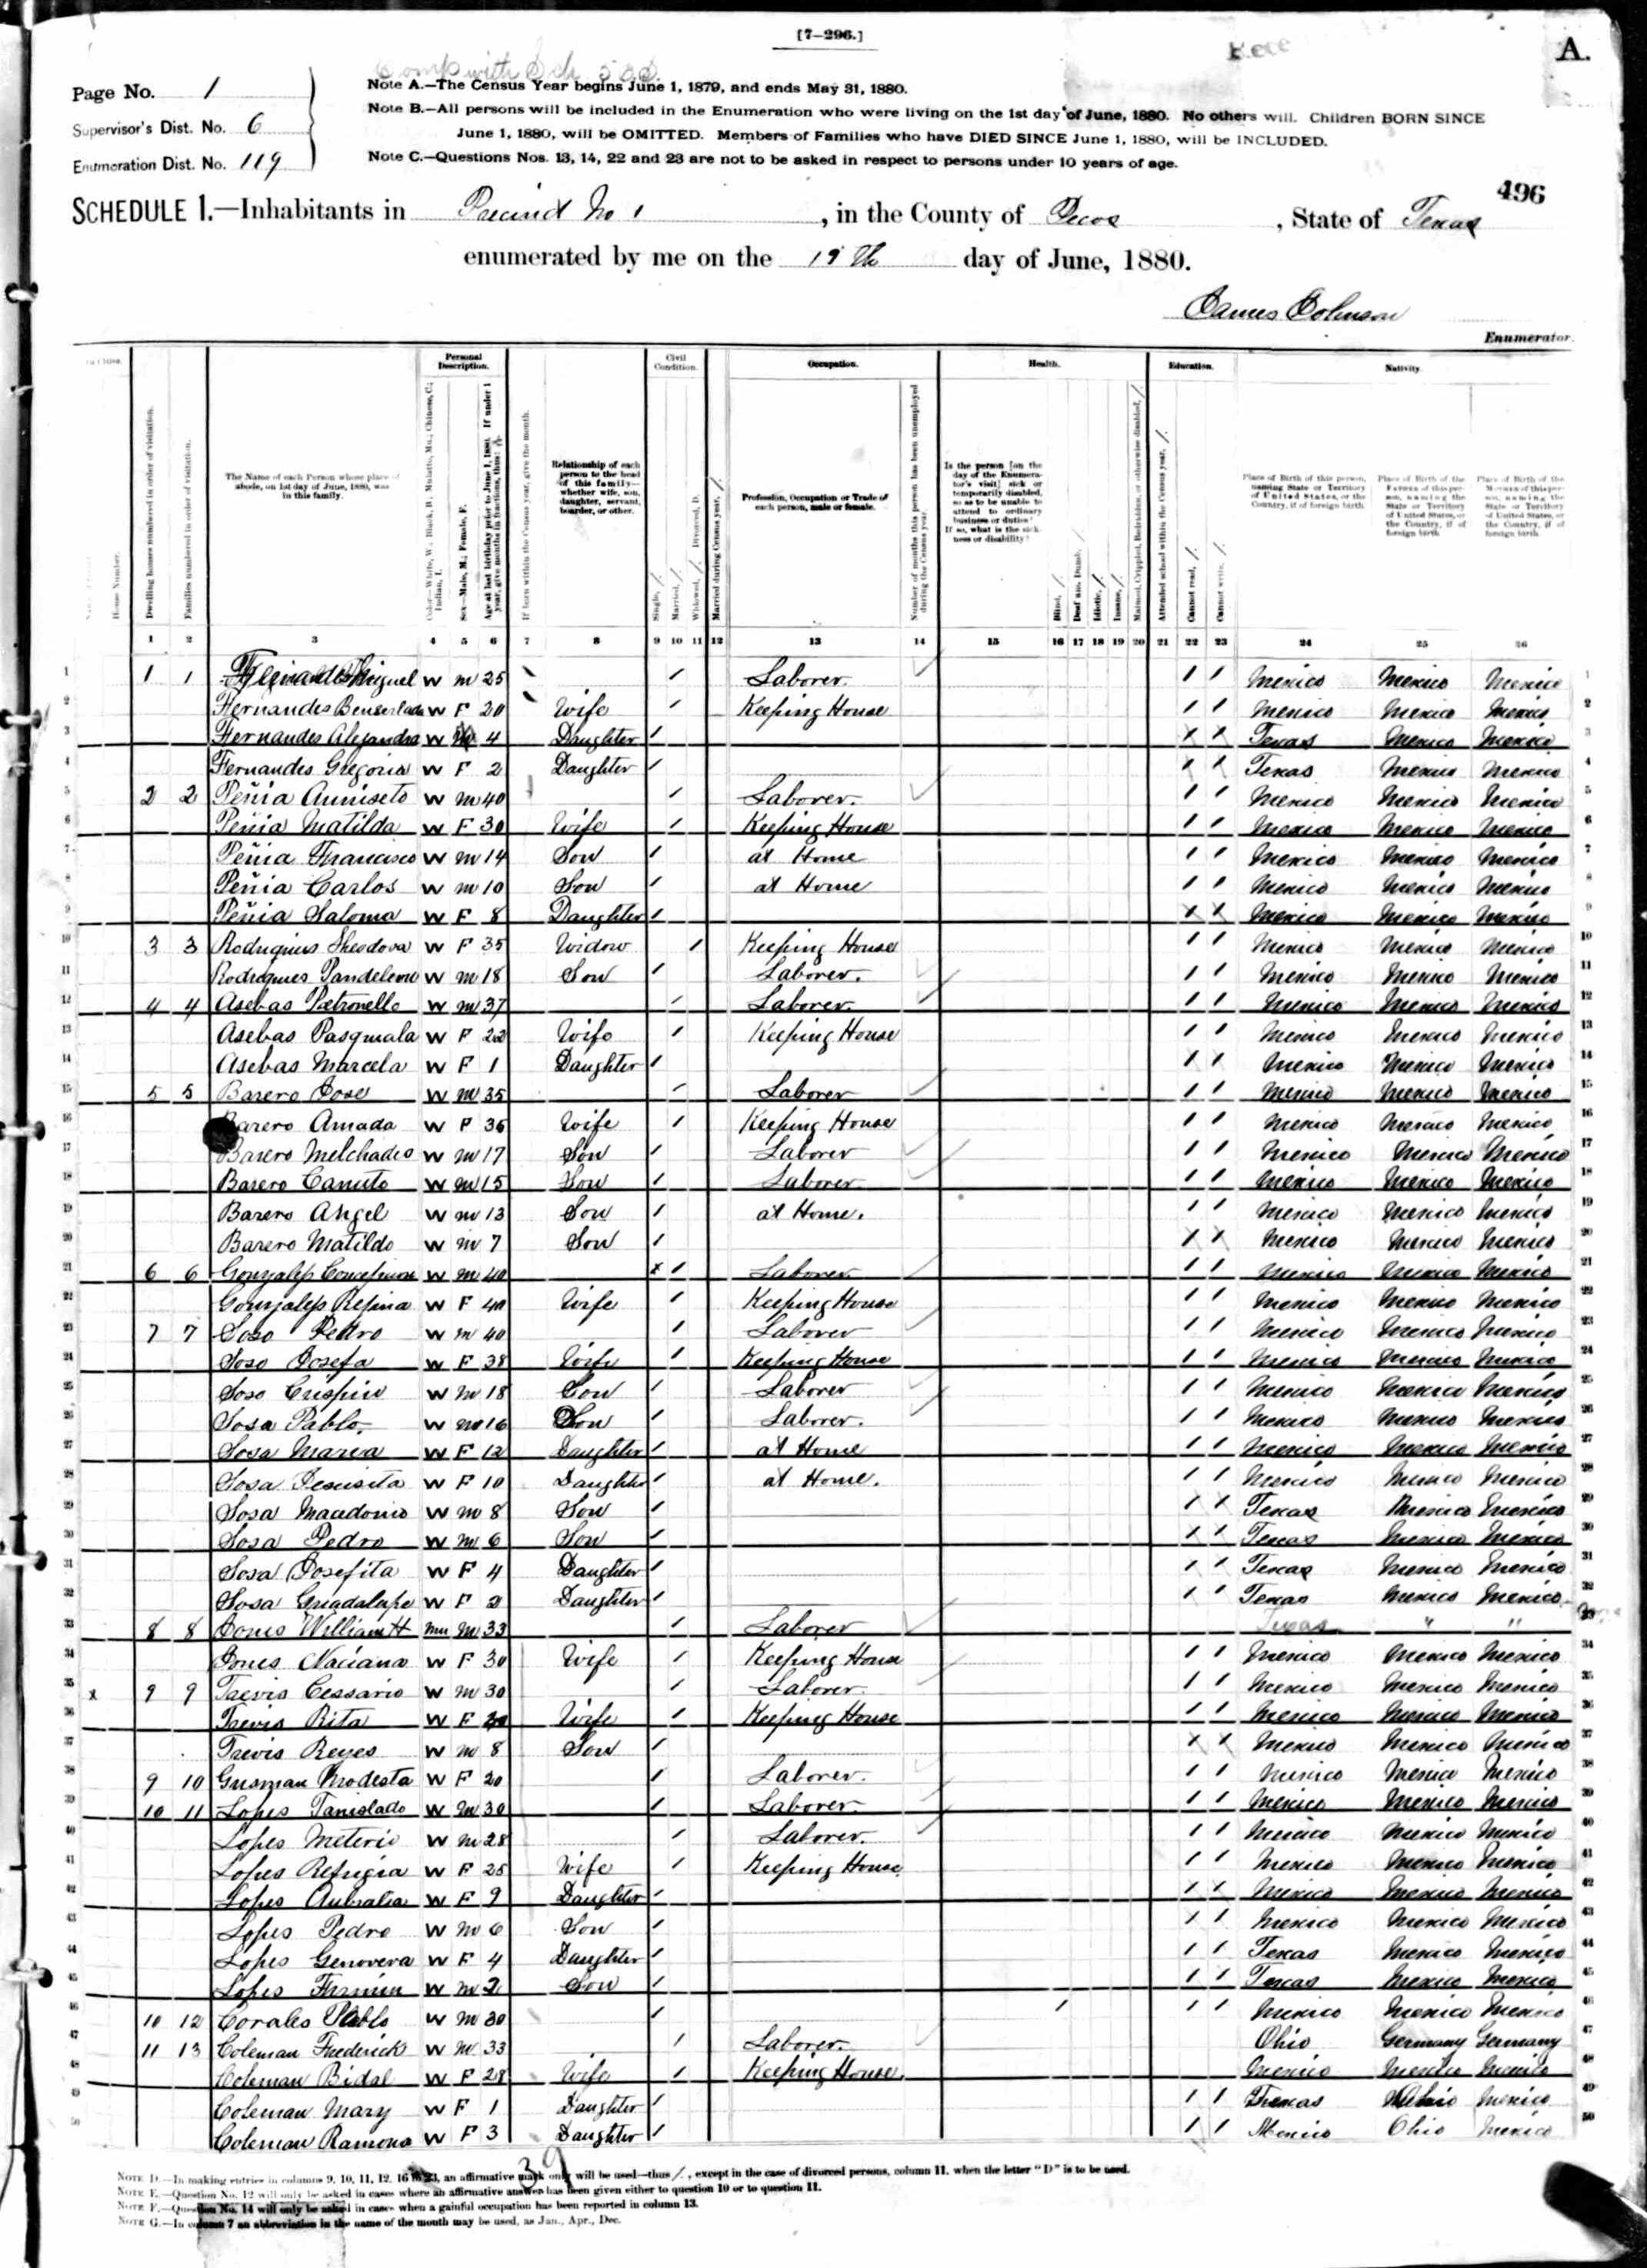 [7-296.]
A.
Page No. 1
Supervisor's Dist. No. 6
Enumeration Dist. No. 119
Note A.—The Census Year begins June 1, 1879, and ends May 31, 1880.
Note B.—All persons will be included in the Enumeration who were living on the 1st day of June, 1880. No others will. Children BORN SINCE
June 1, 1880, will be OMITTED. Members of Families who have DIED SINCE June 1, 1880, will be INCLUDED.
Note C.—Questions Nos. 13, 14, 22 and 23 are not to be asked in respect to persons under 10 years of age.
496
SCHEDULE 1.—Inhabitants in Precinct No 1, in the County of Pecos, State of Texas
enumerated by me on the 19th day of June, 1880.
James Johnson
Enumerator.
Personal Description. Civil Condition. Occupation. Health. Education. Nativity.
The Name of each Person whose place of abode, on 1st day of June, 1880, was in this family.
Relationship of each person to the head of this family—whether wife, son, daughter, servant, boarder, or other.
Profession, Occupation or Trade of each person, male or female.
1 2 3 4 5 6 7 8 9 10 11 12 13 14 15 16 17 18 19 20 21 22 23 24 25 26
1 1 1 Miguel W M 25 / Laborer / / Mexico Mexico Mexico 1
2 Fernandes W F 20 Wife / Keeping House / / Mexico Mexico Mexico 2
3 Fernandes Alejandra W 4 Daughter / X X Texas Mexico Mexico 3
4 Fernandes Gregoria W F 2 Daughter / Texas Mexico Mexico 4
5 2 2 Peñia Aniseto W M 40 / Laborer. / / Mexico Mexico Mexico 5
6 Peñia Matilda W F 30 Wife / Keeping House / / Mexico Mexico Mexico 6
7 Peñia Francisco W M 14 Son / at Home / / Mexico Mexico Mexico 7
8 Peñia Carlos W M 10 Son / at Home / / Mexico Mexico Mexico 8
9 Peñia Saloma W F 8 Daughter / X X Mexico Mexico Mexico 9
10 3 3 Rodrigues Theodora W F 35 Widow / Keeping House / / Mexico Mexico Mexico 10
11 Rodrigues Pandeleon W M 18 Son / Laborer. / / Mexico Mexico Mexico 11
12 4 4 Asebas Petronello W M 37 / Laborer. / / Mexico Mexico Mexico 12
13 Asebas Pasquala W F 22 Wife / Keeping House / / Mexico Mexico Mexico 13
14 Asebas Marcela W F 1 Daughter / Mexico Mexico Mexico 14
15 5 5 Barero Jose W M 35 / Laborer / / Mexico Mexico Mexico 15
16 Barero Amada W F 36 Wife / Keeping House / / Mexico Mexico Mexico 16
17 Barero Melchades W M 17 Son / Laborer / / Mexico Mexico Mexico 17
18 Barero Canuto W M 15 Son / Laborer / / Mexico Mexico Mexico 18
19 Barero Angel W M 13 Son / at Home. / / Mexico Mexico Mexico 19
20 Barero Matildo W M 7 Son / X X Mexico Mexico Mexico 20
21 6 6 Gonzales W M 40 x / Laborer / / Mexico Mexico Mexico 21
22 Gonzales Refina W F 40 Wife / Keeping House / / Mexico Mexico Mexico 22
23 7 7 Soso Pedro W M 40 / Laborer / / Mexico Mexico Mexico 23
24 Soso Josefa W F 38 Wife / Keeping House / / Mexico Mexico Mexico 24
25 Soso Crispin W M 18 Son / Laborer / / Mexico Mexico Mexico 25
26 Sosa Pablo W M 16 Son / Laborer. / / Mexico Mexico Mexico 26
27 Sosa Maria W F 12 Daughter / at Home / / Mexico Mexico Mexico 27
28 Sosa Jesusita W F 10 Daughter / at Home. / / Mexico Mexico Mexico 28
29 Sosa Macedonio W M 8 Son / Texas Mexico Mexico 29
30 Sosa Pedro W M 6 Son / Texas Mexico Mexico 30
31 Sosa Josefita W F 4 Daughter / / / Texas Mexico Mexico 31
32 Sosa Guadalupe W F 2 Daughter / / / Texas Mexico Mexico 32
33 8 8 Jones William H Mu M 33 / Laborer Texas " " 33
34 Jones Naciana W F 30 Wife / Keeping House / / Mexico Mexico Mexico 34
35 x 9 9 Taevis Cessario W M 30 / Laborer. / / Mexico Mexico Mexico 35
36 Taevis Rita W F 30 Wife / Keeping House / / Mexico Mexico Mexico 36
37 Taevis Reyes W M 8 Son / X X Mexico Mexico Mexico 37
38 9 10 Gusman Modesta W F 20 / Laborer. / / Mexico Mexico Mexico 38
39 10 11 Lopes Tanislado W M 30 / Laborer. / / Mexico Mexico Mexico 39
40 Lopes Meterio W M 28 / Laborer. / / Mexico Mexico Mexico 40
41 Lopes Refugia W F 25 Wife / Keeping House / / Mexico Mexico Mexico 41
42 Lopes W F 9 Daughter / Mexico Mexico Mexico 42
43 Lopes Pedro W M 6 Son / Mexico Mexico Mexico 43
44 Lopes Genovera W F 4 Daughter / / / Texas Mexico Mexico 44
45 Lopes Firmin W M 2 Son / / / Texas Mexico Mexico 45
46 10 12 Corales Pablo W M 30 / / / / Mexico Mexico Mexico 46
47 11 13 Coleman Frederick W M 33 / Laborer. Ohio Germany Germany 47
48 Coleman Bidal W F 28 Wife / Keeping House. Mexico Mexico Mexico 48
49 Coleman Mary W F 1 Daughter / / / Texas Ohio Mexico 49
50 Coleman Ramona W F 3 Daughter / / / Mexico Ohio Mexico 50
39
NOTE D.—In making entries in columns 9, 10, 11, 12, 16 to 23, an affirmative mark only will be used—thus /, except in the case of divorced persons, column 11, when the letter "D" is to be used.
NOTE E.—Question No. 12 will only be asked in cases where an affirmative answer has been given either to question 10 or to question 11.
NOTE F.—Question No. 14 will only be asked in cases when a gainful occupation has been reported in column 13.
NOTE G.—In column 7 an abbreviation in the name of the month may be used, as Jan., Apr., Dec.